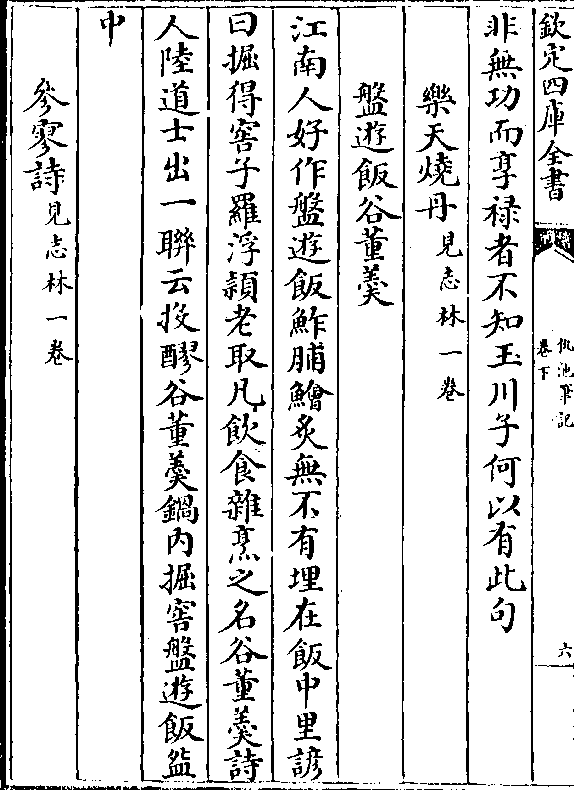 欽定四庫全書
仇池筆記
卷下
六
非無功而享禄者不知玉川子何以有此句
樂天燒丹見志林一卷
盤遊飯谷董羮
江南人好作盤遊飯鮓脯鱠炙無不有埋在飯中里諺
曰掘得窖子羅浮頴老取凡飲食雜烹之名谷董羮詩
人陸道士出一聯云投醪谷董羮鍋内掘窖盤遊飯盌
中
參寥詩見志林一卷